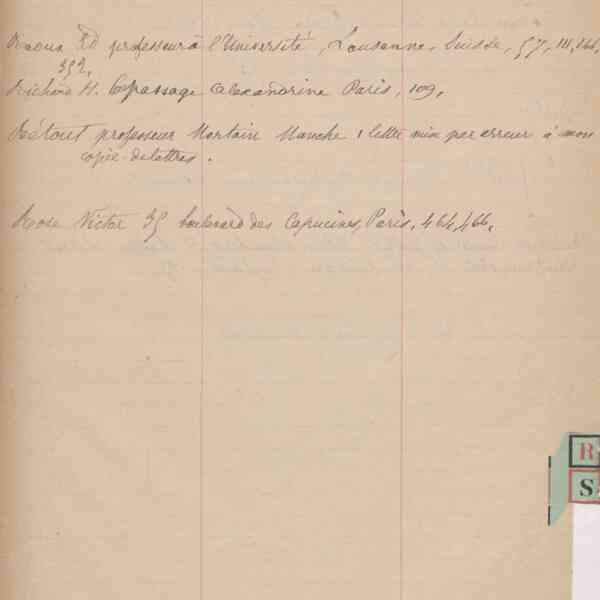 professeur à l'Université, Lausanne, Suisse, 57, 111, 166,
392,
H. 6 passage Alexandrine Paris, 109,
Rétout professeur Mortain Manche, 1 lettre mise par erreur à mon
copie de lettres.
Rose Victor 35 boulevard des Capucines, Paris, 464, 466,
R
S